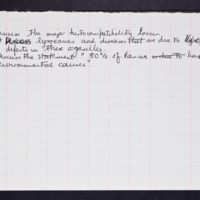 Discuss the major histocompatibility locus.
Discuss lysosomes and diseases that are due to
defects in these organelles.
Discuss the statement "80% of cancers
environmental causes"